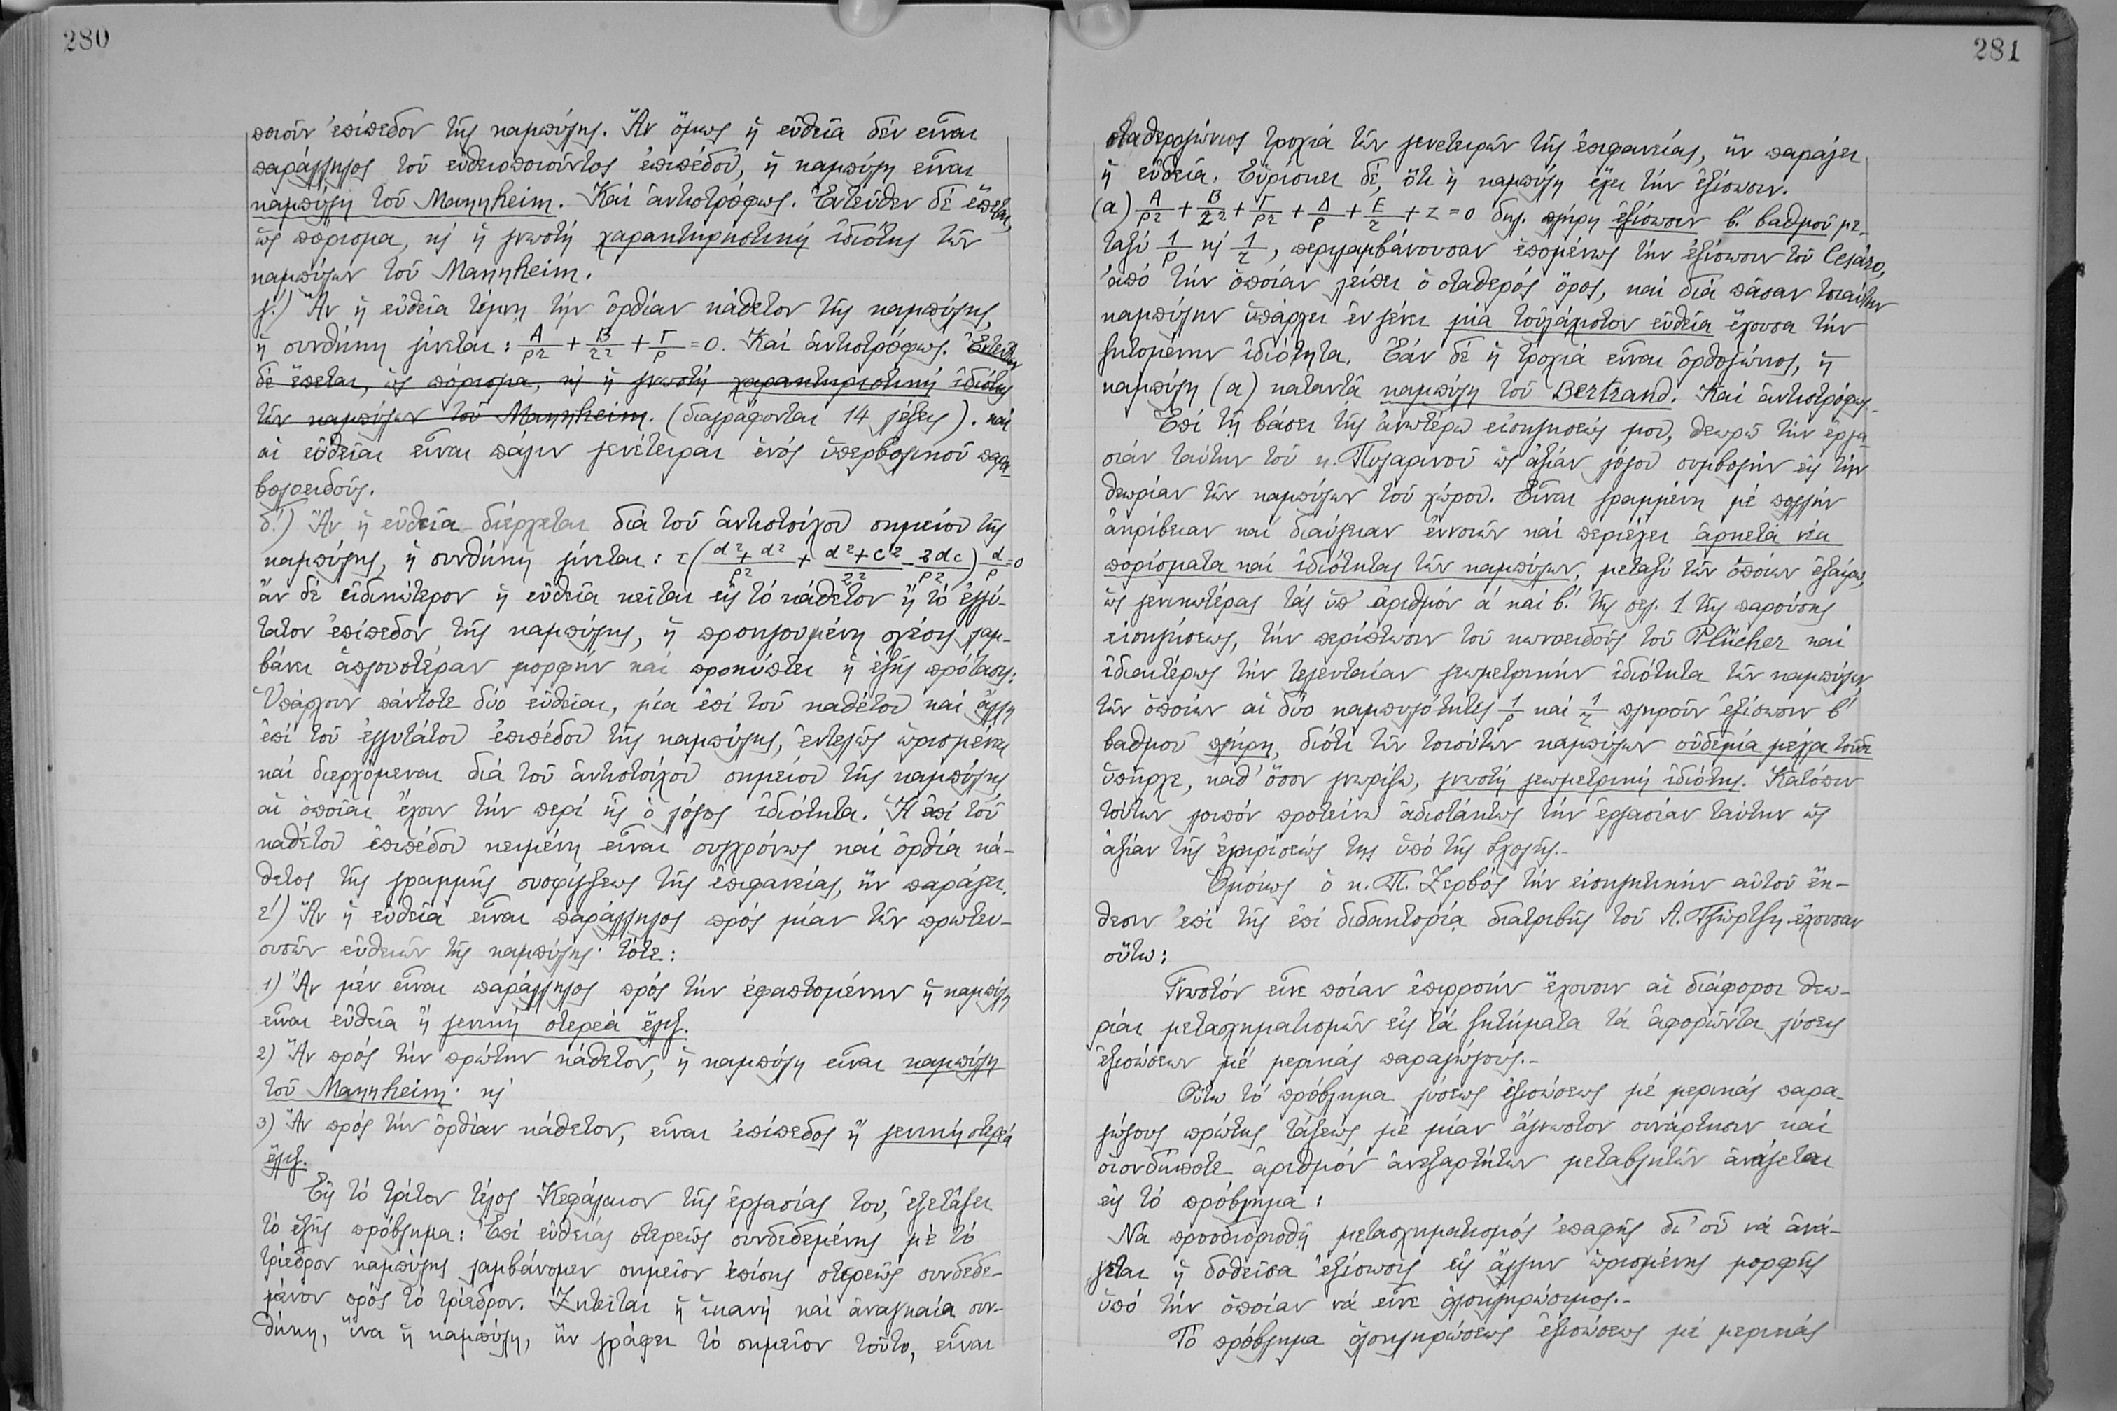 280
ποιοῦν ἐπίπεδον τῆς καμπύλης. Ἄν ὅμως ἡ εὐθεῖα δέν εἶναι
παράλληλος τοῦ εὐθειοποιοῦντος ἐπιπέδου, ἡ καμπύλη εἶναι
καμπύλη τοῦ Mannheim. Καί ἀντιστρόφως. Ἐντεῦθεν δέ ἕπεται,
ὡς πόρισμα, κ ἡ γνωστή χαρακτηριστική ἰδιότης τῶν
καμπύλων τοῦ Mannheim.
γ΄.) Ἄν ἡ εὐθεῖα τέμνῃ τήν ὀρθίαν κάθετον τῆς καμπύλης,
ἡ συνθήκη γίνεται: A/ρ2 + B/τ2 + Γ/ρ = 0. Καί ἀντιστρόφως. Ἐντεῦθεν
δέ ἕπεται, ὡς πόρισμα, κ ἡ γνωστή χαρακτηριστική ἰδιότης
τῶν καμπύλων τοῦ Mannheim. (διαγράφονται 14 λέξεις). καί
αἱ εὐθεῖαι εἶναι πάλιν γενέτειραι ἑνός ὑπερβολικοῦ παρα-
βολοειδοῦς.
δ΄.) Ἄν ἡ εὐθεῖα διέρχεται διά τοῦ ἀντιστοίχου σημείου τῆς
καμπύλης, ἡ συνθήκη γίνεται: τ(d2+d2/ρ2 + d2+c2/τ2 - 2dc/ρ2) d/ρ = 0
ἄν δέ εἰδικώτερον ἡ εὐθεῖα κεῖται εἰς τό κάθετον ἤ τό ἐγγύ-
τατον ἐπίπεδον τῆς καμπύλης, ἡ προηγουμένη σχέσις λαμ-
βάνει ἁπλουστέραν μορφήν καί προκύπτει ἡ ἑξῆς πρότασις:
Ὑπάρχουν πάντοτε δύο εὐθεῖαι, μία ἐπί τοῦ καθέτου καί ἄλλη
ἐπί τοῦ ἐγγυτάτου ἐπιπέδου τῆς καμπύλης, ἐντελῶς ὡρισμέναι
καί διερχόμεναι διά τοῦ ἀντιστοίχου σημείου τῆς καμπύλης
αἱ ὁποῖαι ἔχουν τήν περί ἧς ὁ λόγος ἰδιότητα. Ἡ ἐπί τοῦ
καθέτου ἐπιπέδου κειμένη εἶναι συγχρόνως καί ὀρθία κά-
θετος τῆς γραμμῆς συσφίγξεως τῆς ἐπιφανείας, ἥν παράγει.
ε΄) Ἄν ἡ εὐθεῖα εἶναι παράλληλος πρός μίαν τῶν πρωτευ-
ουσῶν εὐθειῶν τῆς καμπύλης· τότε:
1) Ἄν μέν εἶναι παράλληλος πρός τήν ἐφαπτομένην ἡ καμπύλη
εἶναι εὐθεῖα ἤ γενική στερεά ἕλιξ.
2) Ἄν πρός τήν πρώτην κάθετον, ἡ καμπύλη εἶναι καμπύλη
τοῦ Mannheim· κ
3) Ἄν πρός τήν ὀρθίαν κάθετον, εἶναι ἐπίπεδος ἤ γενική στερεά
ἕλιξ.
Εἰς τό τρίτον τέλος Κεφάλαιον τῆς ἐργασίας του, ἐξετάζει
τό ἑξῆς πρόβλημα: Ἐπί εὐθείας στερεῶς συνδεδεμένης μέ τό
τρίεδρον καμπύλης λαμβάνομεν σημεῖον ἐπίσης στερεῶς συνδεδε-
μένον πρός τό τρίεδρον. Ζητεῖται ἡ ἱκανή καί ἀναγκαία συν-
θήκη, ἵνα ἡ καμπύλη, ἥν γράφει τό σημεῖον τοῦτο, εἶναι
281
σταθερογώνιος τροχιά τῶν γενετειρῶν τῆς ἐπιφανείας, ἥν παράγει
ἡ εὐθεῖα. Εὑρίσκει δέ, ὅτι ἡ καμπύλη ἔχει τήν ἐξίσωσιν.
(α) A/ρ2 + B/τ2 + Γ/ρ2 + Δ/ρ + E/τ + Z = 0 δηλ. πλήρη ἐξίσωσιν β΄. βαθμοῦ με-
ταξύ 1/ρ κ 1/τ, περιλαμβάνουσαν ἑπομένως τήν ἐξίσωσιν τοῦ Cesáro,
ἀπό τήν ὁποίαν λείπει ὁ σταθερός ὅρος, καί διά πᾶσαν τοιαύτην
καμπύλην ὑπάρχει ἐν γένει μία τοὐλάχιστον εὐθεῖα ἔχουσα τήν
ζητουμένην ἰδιότητα. Ἐάν δέ ἡ τροχιά εἶναι ὀρθογώνιος, ἡ
καμπύλη (α) καταντᾷ καμπύλη τοῦ Bertrand. Καί ἀντιστρόφως.
Ἐπί τῇ βάσει τῆς ἀνωτέρω εἰσηγήσεώς μου, θεωρῶ τήν ἐργα-
σίαν ταύτην τοῦ κ. Πυλαρινοῦ ὡς ἀξίαν λόγου συμβολήν εἰς τήν
θεωρίαν τῶν καμπύλων τοῦ χώρου. Εἶναι γραμμένη μέ πολλήν
ἀκρίβειαν καί διαύγειαν ἐννοιῶν καί περιέχει ἀρκετά νέα
πορίσματα καί ἰδιότητας τῶν καμπύλων, μεταξύ τῶν ὁποίων ἐξαίρω,
ὡς γενικωτέρας τάς ὑπ' ἀριθμόν α΄ καί β΄. τῆς σελ. 1 τῆς παρούσης
εἰσηγήσεως, τήν περίπτωσιν τοῦ κωνοειδοῦς τοῦ Plücker καί
ἰδιαιτέρως τήν τελευταίαν γεωμετρικήν ἰδιότητα τῶν καμπύλων
τῶν ὁποίων αἱ δύο καμπυλότητες 1/ρ καί 1/τ πληροῦν ἐξίσωσιν β΄
βαθμοῦ πλήρη, διότι τῶν τοιούτων καμπύλων οὐδεμία μέχρι τοῦδε
ὑπῆρχε, καθ' ὅσον γνωρίζω, γνωστή γεωμετρική ἰδιότης. Κατόπιν
τούτων λοιπόν προτείνω ἀδιστάκτως τήν ἐργασίαν ταύτην ὡς
ἀξίαν τῆς ἐγκρίσεώς της ὑπό τῆς Σχολῆς.-
Ὁμοίως ὁ κ. Π. Ζερβός τήν εἰσηγητικήν αὐτοῦ ἔκ-
θεσιν ἐπί τῆς ἐπί διδακτορίᾳ διατριβῆς τοῦ Λ. Τζώρτζη ἔχουσαν
οὕτω:
Γνωστόν εἶνε ποίαν ἐπιρροήν ἔχουσιν αἱ διάφοροι θεω-
ρίαι μετασχηματισμῶν εἰς τά ζητήματα τά ἀφορῶντα λύσεις
ἐξισώσεων μέ μερικάς παραγώγους.-
Οὕτω τό πρόβλημα λύσεως ἐξισώσεως μέ μερικάς παρα-
γώγους πρώτης τάξεως μέ μίαν ἄγνωστον συνάρτησιν καί
οἱονδήποτε ἀριθμόν ἀνεξαρτήτων μεταβλητῶν ἀνάγεται
εἰς τό πρόβλημα:
Νά προσδιορισθῇ μετασχηματισμός ἐπαφῆς δι' οὗ νά ἀνά-
γεται ἡ δοθεῖσα ἐξίσωσις εἰς ἄλλην ὡρισμένης μορφῆς
ὑπό τήν ὁποίαν νά εἶνε ὁλοκληρώσιμος.-
Τό πρόβλημα ὁλοκληρώσεως ἐξισώσεως μέ μερικάς